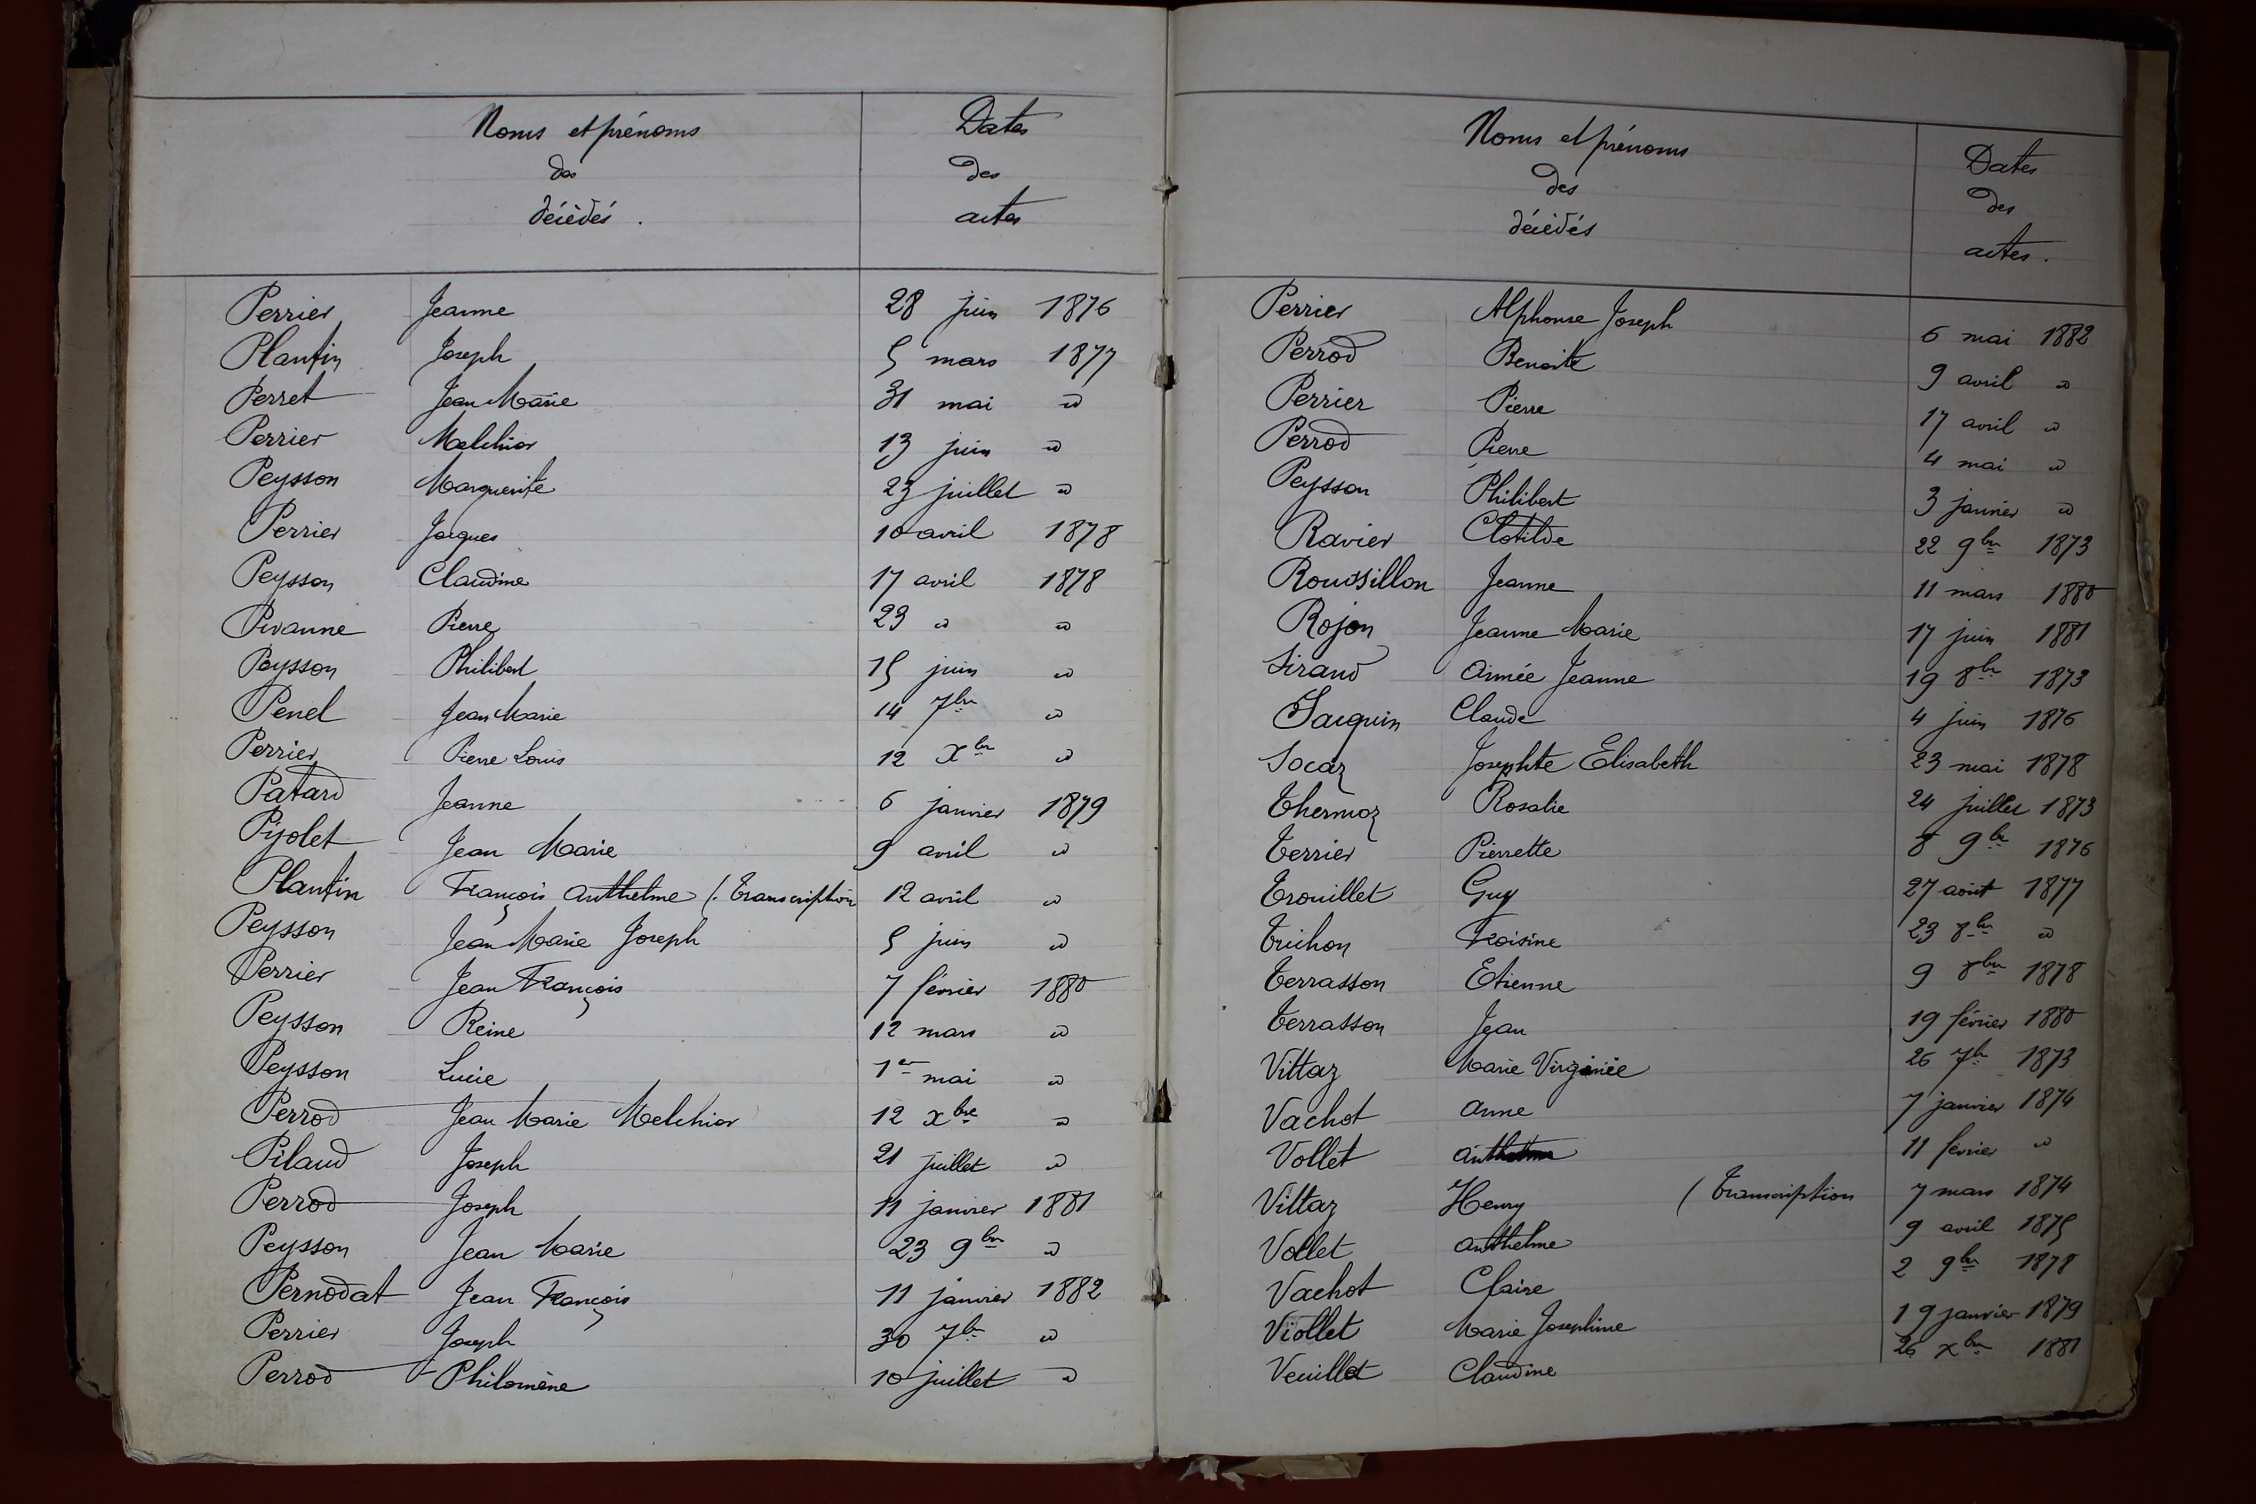 Noms et prénoms
des
décédés.
Dates
des
actes
Perrier Jeanne 28 juin 1876
Plantin Joseph 5 mars 1877
Perret Jean Marie 31 mai id
Perrier Melchior 13 juin id
Peysson Marguerite 23 juillet id
Perrier Jacques 10 avril 1878
Peysson Claudine 17 avril 1878
Pivanne Pierre 23 id id
Peysson Philibert 15 juin id
Penel Jean Marie 14 7bre id
Perrier Pierre Louis 12 Xbre id
Patard Jeanne 6 janvier 1879
Pijolet Jean Marie 9 avril id
Plantin François Anthelme (Transcription 12 avril id
Peysson Jean Marie Joseph 5 juin id
Perrier Jean François 7 février 1880
Peysson Reine 12 mars id
Peysson Lucie 1er mai id
Perrod Jean Marie Melchior 12 xbre id
Pilaud Joseph 21 juillet id
Perrod Joseph 11 janvier 1881
Peysson Jean Marie 23 9bre id
Pernodat Jean François 11 janvier 1882
Perrier Joseph 30 7bre id
Perrod Philomène 10 juillet id
Noms et prénoms
des
décédés
Dates
des
actes.
Perrier Alphonse Joseph 6 mai 1882
Perrod Benoite 9 avril id
Perrier Pierre 17 avril id
Perrod Pierre 4 mai id
Peysson Philibert 3 janvier id
Ravier Clotilde 22 9bre 1873
Roussillon Jeanne 11 mars 1880
Rojon Jeanne Marie 17 juin 1881
Sirand Aimée Jeanne 19 8bre 1873
Jacquin Claude 4 juin 1876
Socaz Josephte Elisabeth 23 mai 1878
Thermoz Rosalie 24 juillet 1873
Terrier Pierrette 8 9bre 1876
Trouillet Guy 27 août 1877
Truchon Froisine 23 8bre id
Terrasson Etienne 9 8bre 1878
Terrasson Jean 19 février 1880
Vittaz Marie Virginie 26 7bre 1873
Vachot Anne 7 janvier 1874
Vollet Anthelme 11 fevrier id
Vittaz Henry (Transcription 7 mars 1874
Vollet Anthelme 9 avril 1875
Vachot Claire 2 9bre 1878
Viollet Marie Josephine 19 janvier 1879
Veuillet Claudine 26 xbre 1881